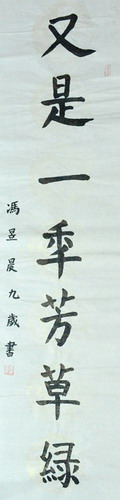 又是一秊芳草綠
馮昱晨九歲書